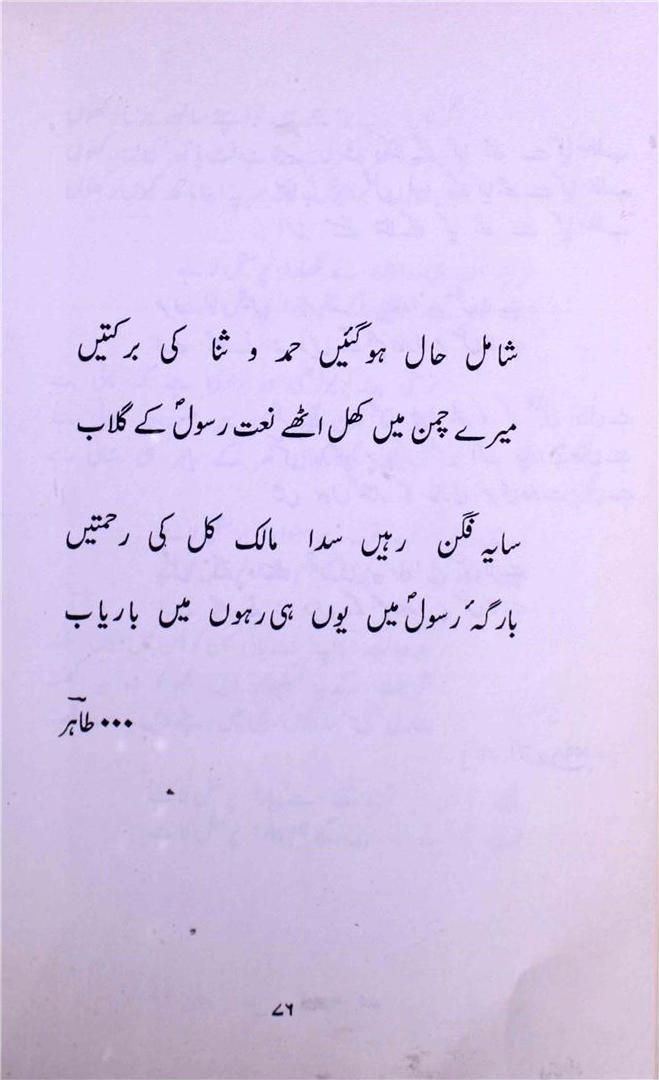 شامل حال ہوگئیں حمد و ثنا کی برکتیں
میرے چمن میں کھل اٹھے نعت رسولؐ کے گلاب
سایہ فگن رہیں سدا مالک کل کی رحمتیں
بارگہٴ رسولؐ میں یوں ہی رہوں میں باریاب
۰۰۰ طاہرؔ
۷۶